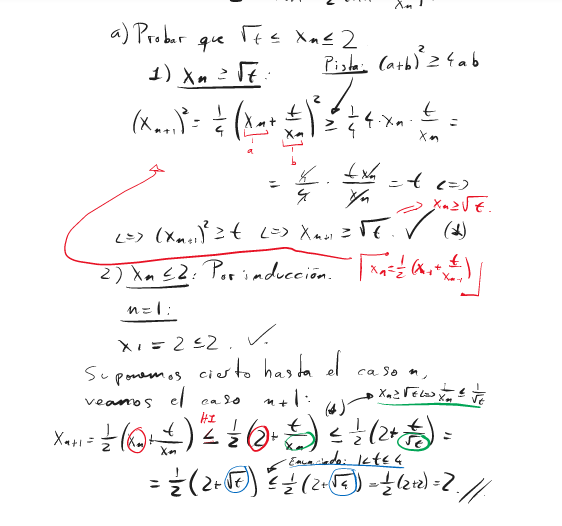 xₙ
a) Probar que √t ≤ xₙ ≤ 2
1) xₙ ≥ √t: Pista: (a+b)² ≥ 4ab
(xₙ₊₁)² = 1/4 (xₙ + t/xₙ)² ≥ 1/4 4·xₙ · t/xₙ =
a b
= 4/4 · t xₙ/xₙ = t <=>
=> xₙ ≥ √t.
<=> (xₙ₊₁)² ≥ t <=> xₙ₊₁ ≥ √t. ✓ (1)
2) xₙ ≤ 2: Por inducción. xₙ = 1/2 (xₙ₋₁ + t/xₙ₋₁)
n=1:
x₁ = 2 ≤ 2. ✓.
Suponemos cierto hasta el caso n,
veamos el caso n+1: (1) → xₙ ≥ √t <=> 1/xₙ ≤ 1/√t
xₙ₊₁ = 1/2 (xₙ + t/xₙ) ≤ 1/2 (2 + t/xₙ) ≤ 1/2 (2 + t/√t) =
HI
Enunciado: 1<t≤4
= 1/2 (2+√t) ≤ 1/2 (2+√4) = 1/2 (2+2) = 2. //